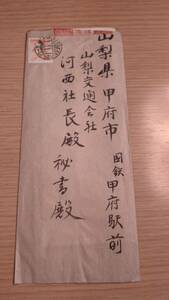 山梨県 甲府市 国鉄甲府駅前
山梨交通会社
河西社長殿 秘書殿